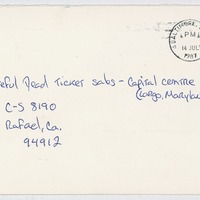 BALTIMORE
PM
14 JUL
1987
eful Dead Ticket sales - Capital Centre
(Largo, Maryla
C-S 8190
Rafael, Ca.
94912